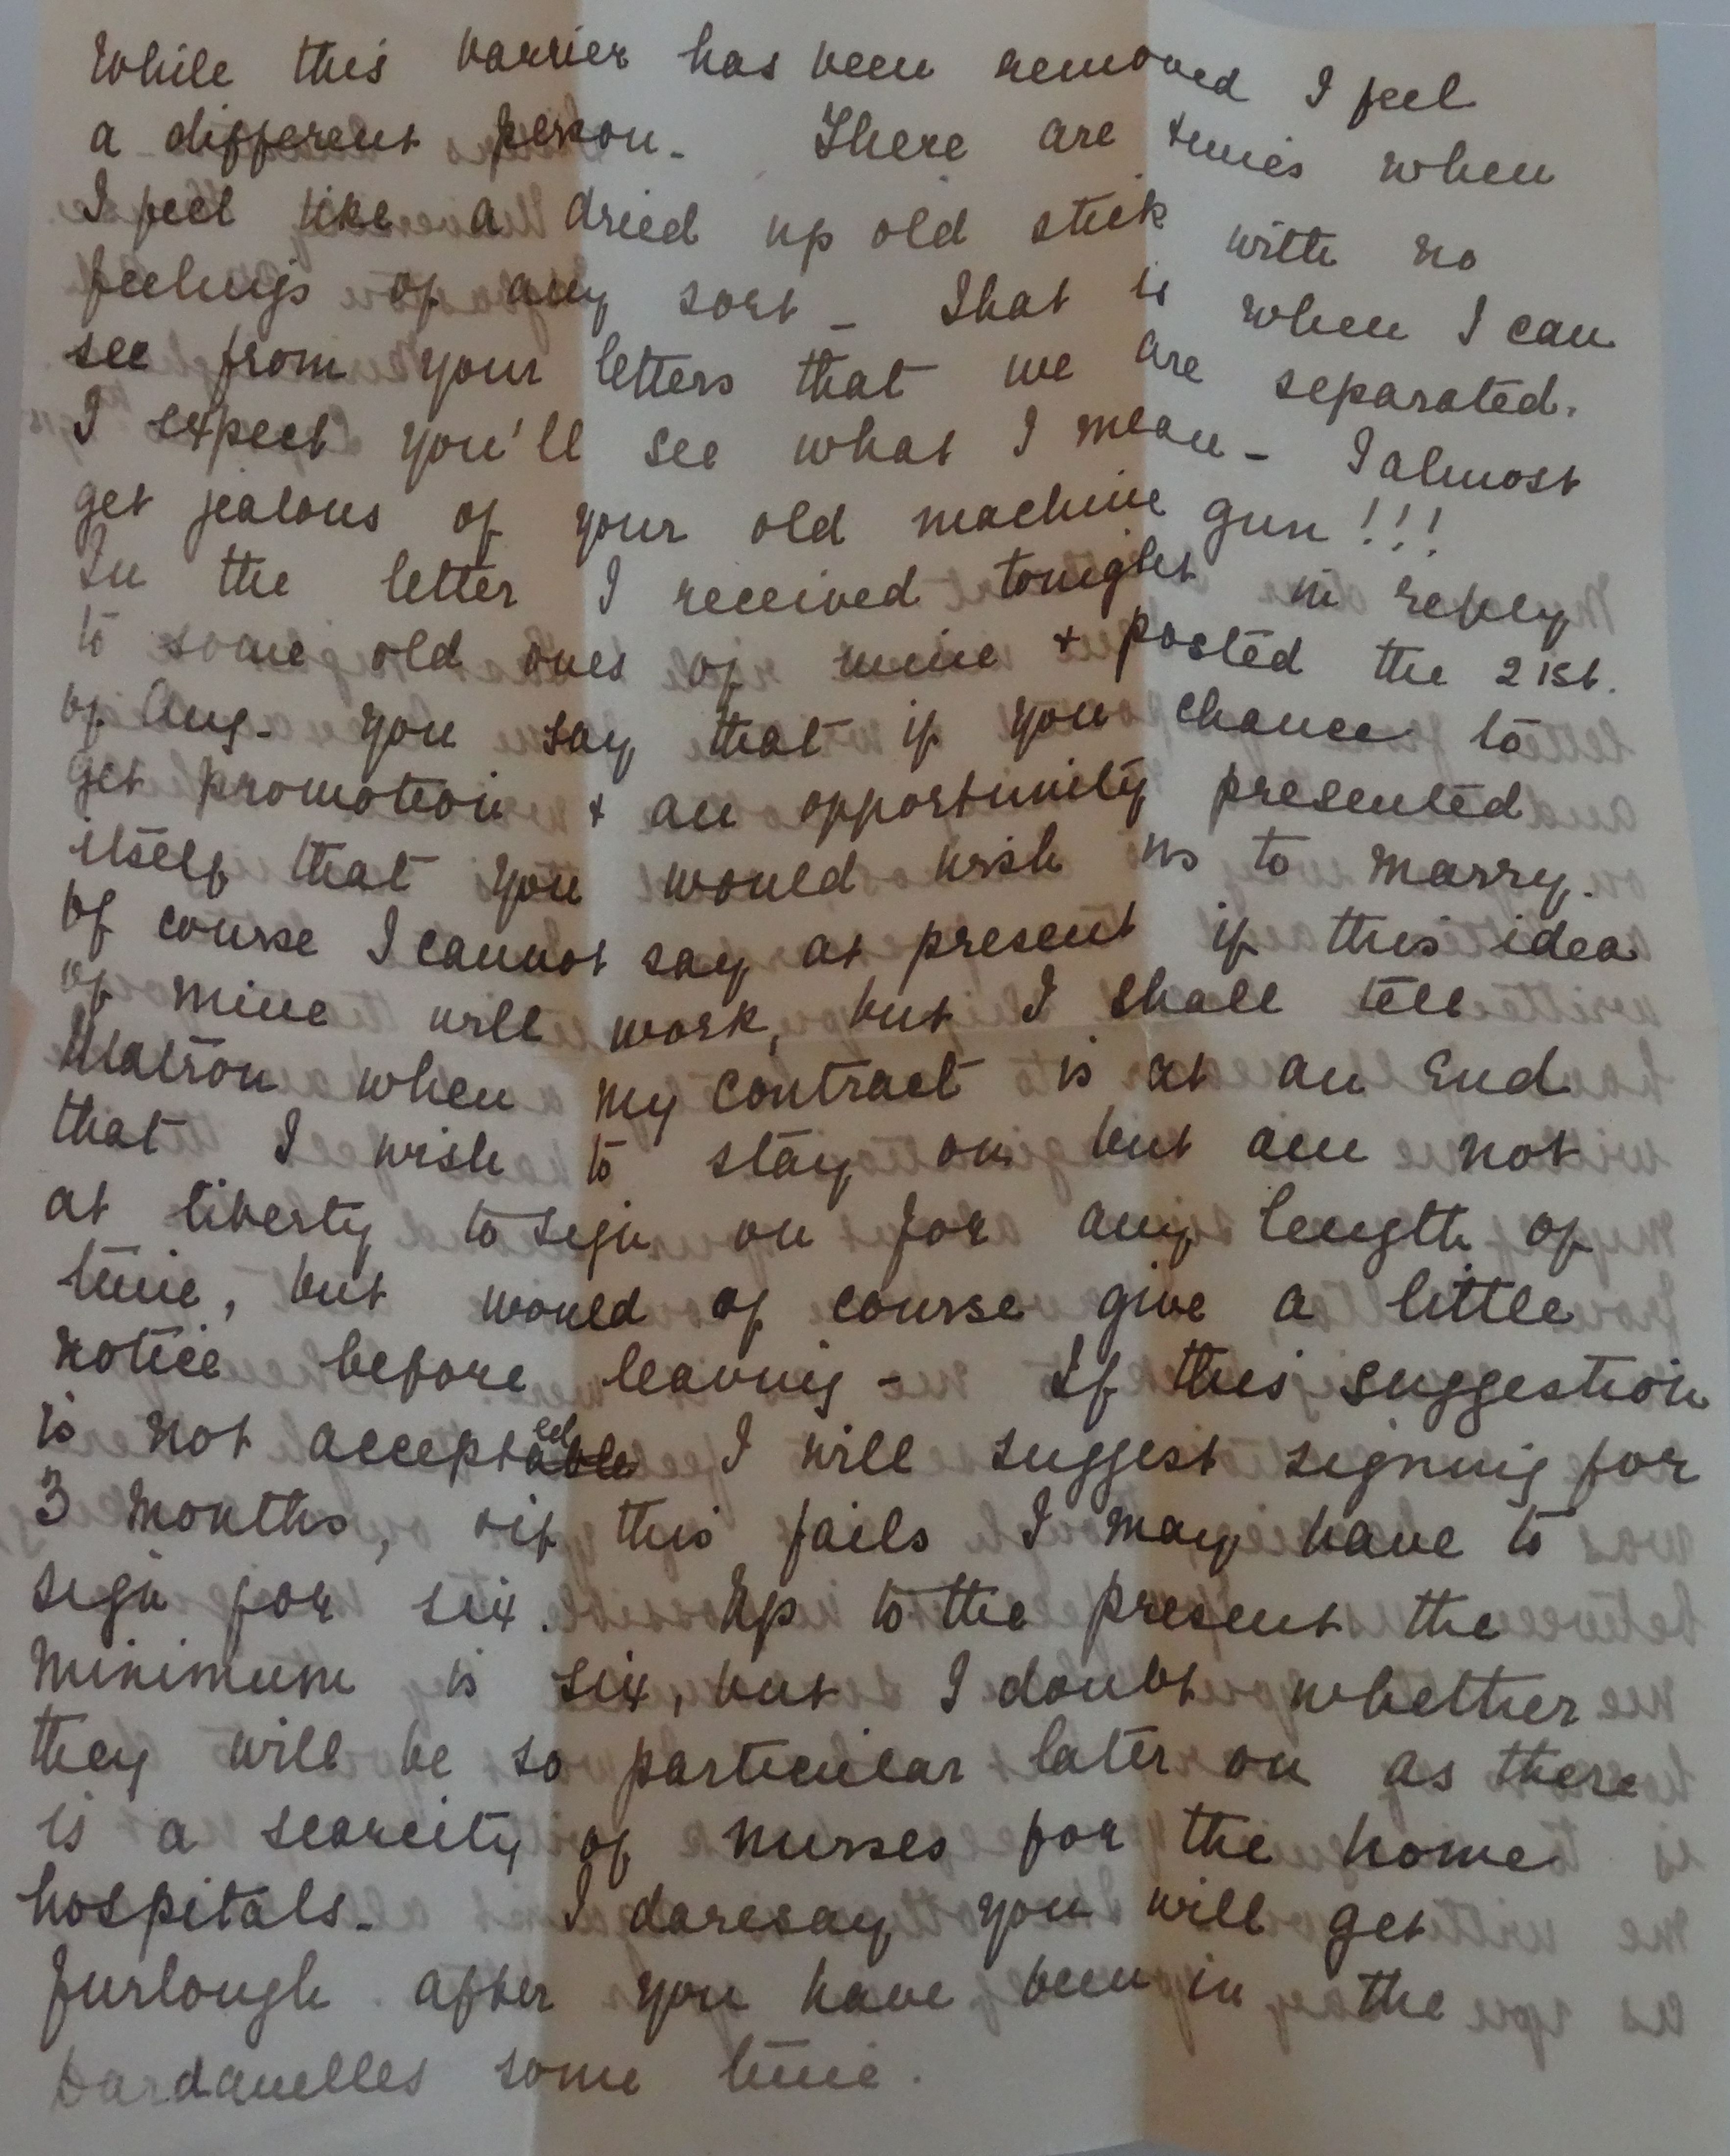 While this barrier has been removed I feel
a different person. There are times when
I feel like a dried up old stick with no
feelings of any sort - That is when I can
see from your letters that we are separated.
I expect you'll see what I mean - I almost
get jealous of your old machine gun!!!
In the letter I received tonight in reply
to some old ones of mine + posted the 21st.
of Aug - you say that if you chance to
get promotion + an opportunity presented
itself that you would wish us to marry.
Of course I cannot say at present if this idea
of mine will work, but I shall tell
Matron when my contract is at an end
that I wish to stay on but am not
at liberty to sign on for any length of
time, but would of course give a little
notice before leaving - If this suggestion
is not accepted I will suggest signing for
3 months, + if this fails I may have to
sign for six. Up to the present the
minimum is six, but I doubt whether
they will be so particular later on as there
is a scarcity of nurses for the home
hospitals. I daresay you will get
furlough after you have been in the
Dardanelles some time.